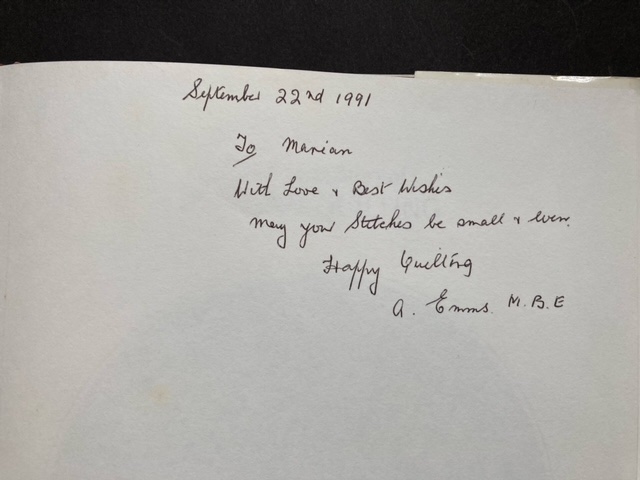 September 22nd 1991
To Marian
With Love & Best Wishes
May your Stitches be small & even.
Happy Quilting
A. Emms. M.B.E